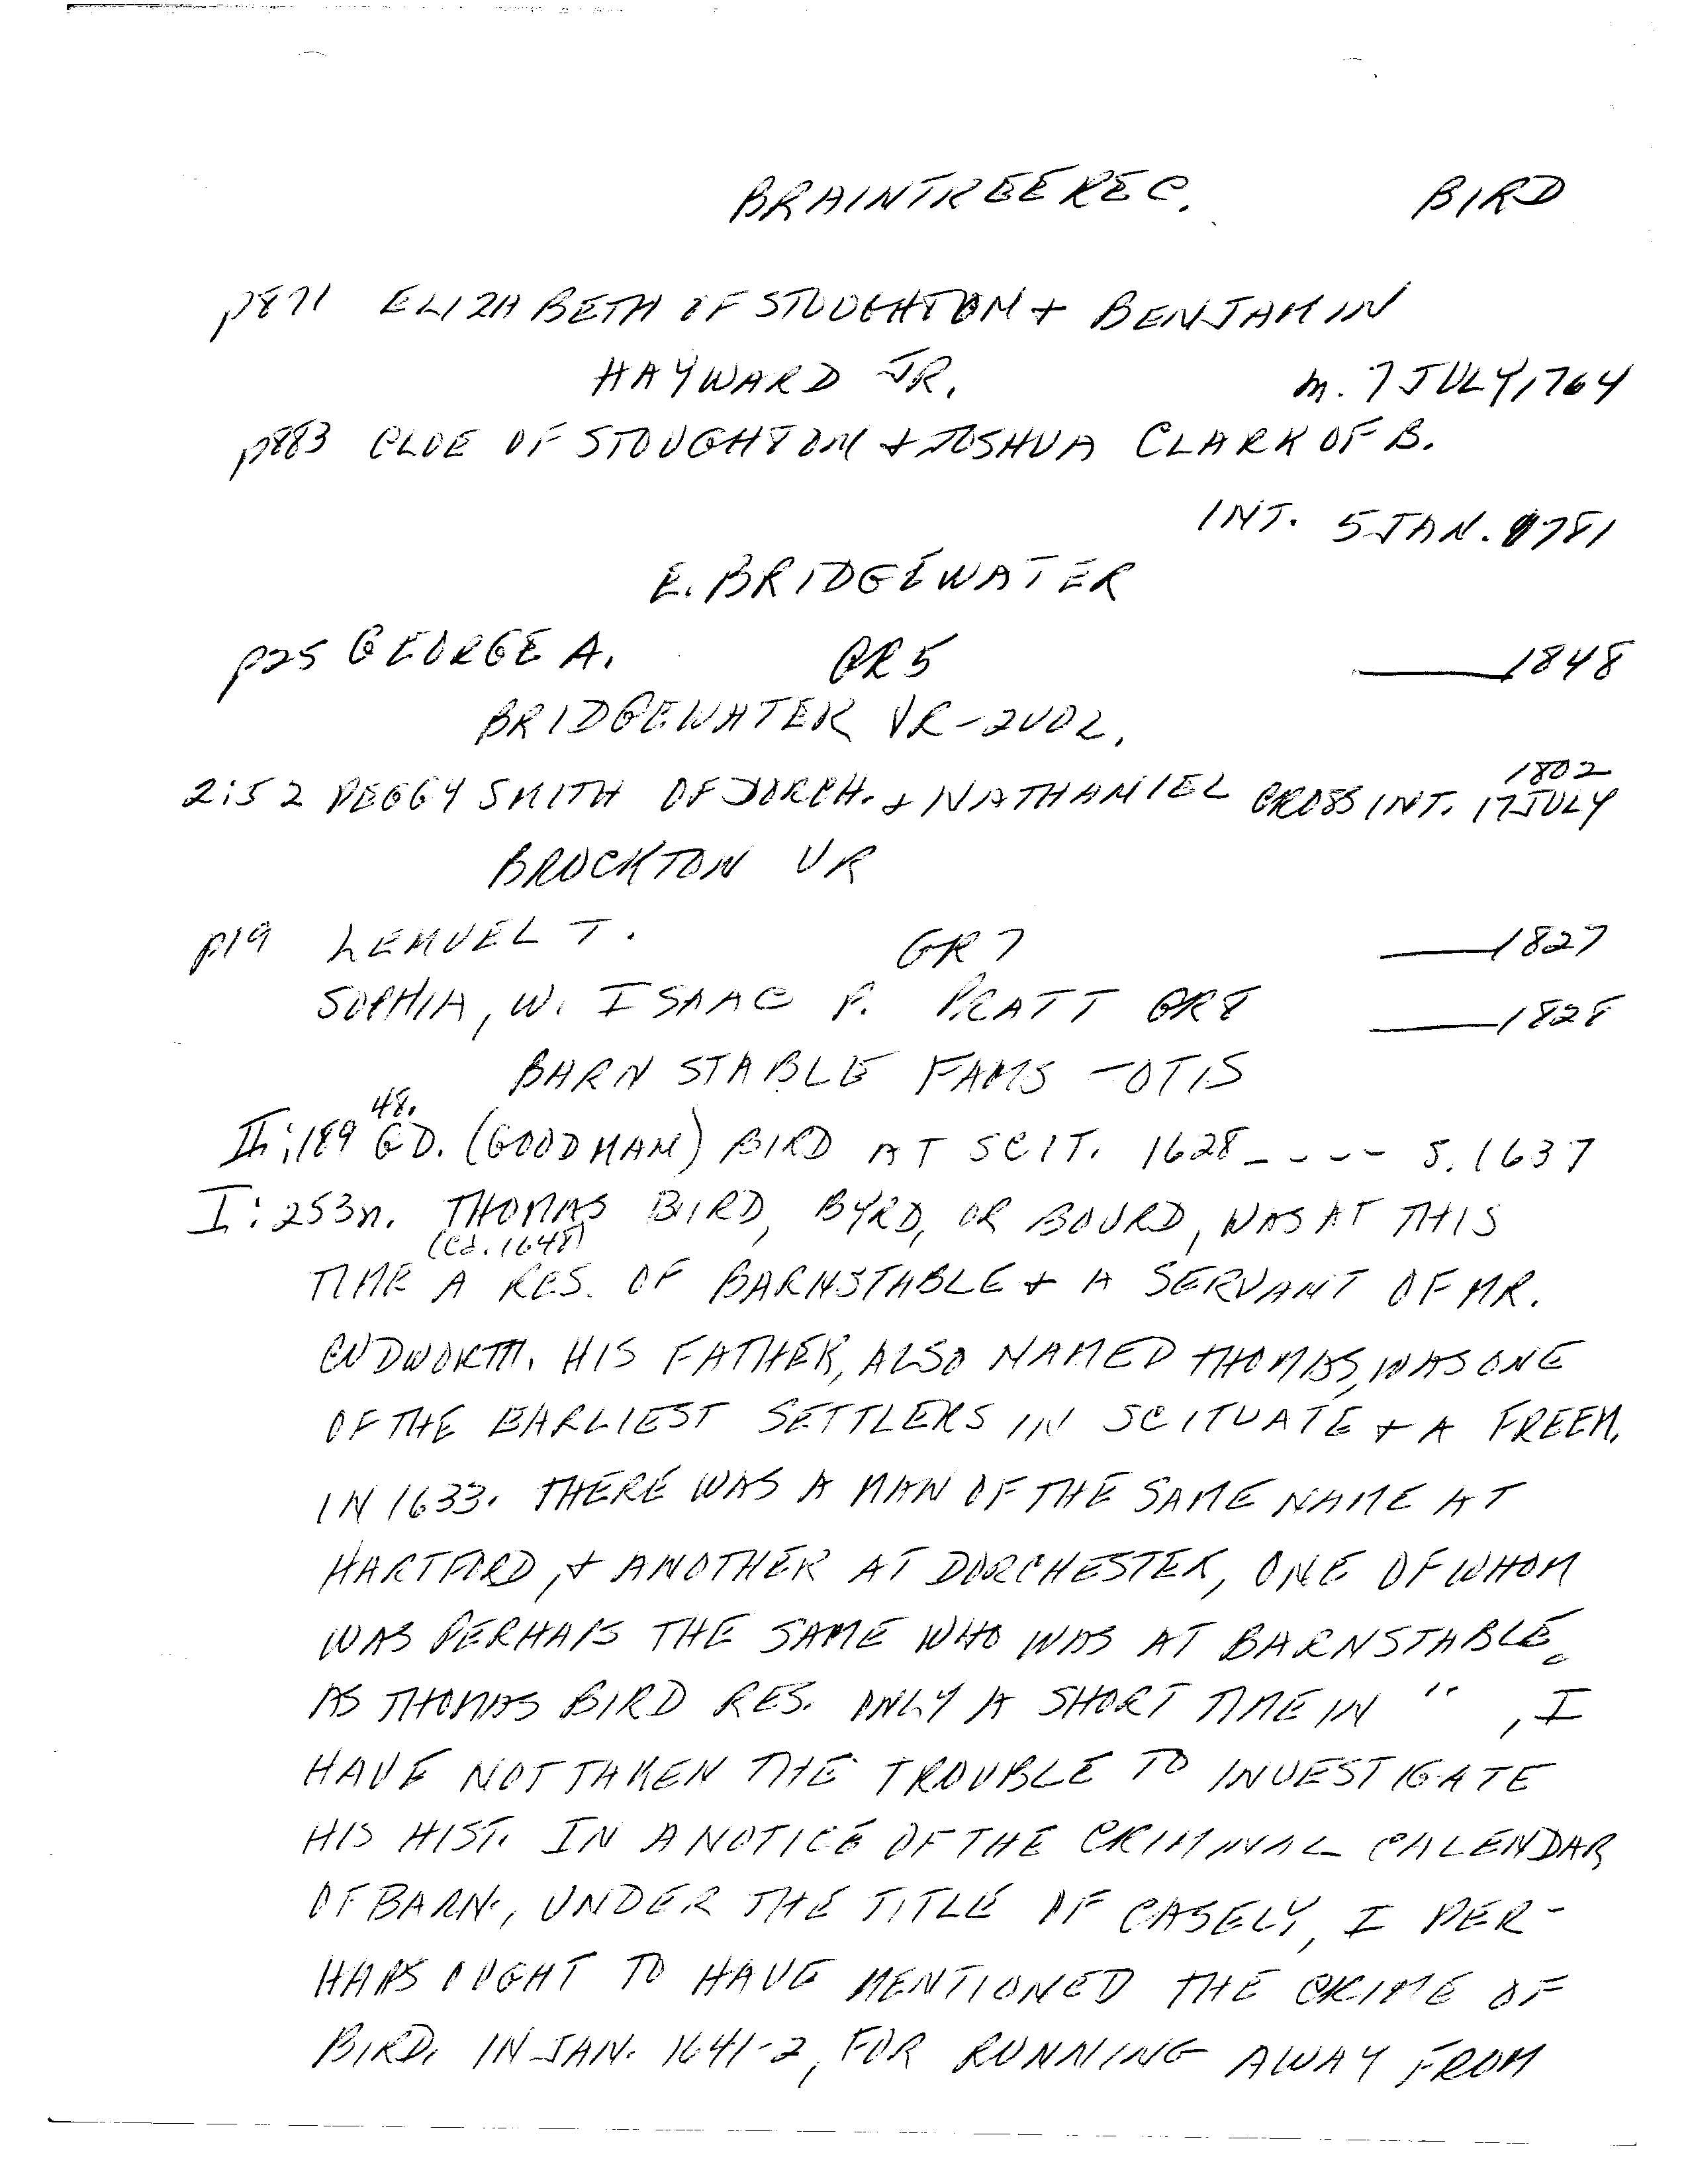 BRAINTREE REC. BIRD
p871 ELIZABETH OF STOUGHTON + BENJAMIN
HAYWARD JR. m. 7 JULY 1764
p883 CLOE OF STOUGHTON + JOSHUA CLARK OF B.
INT. 5 JAN. 1781
E. BRIDGEWATER
p25 GEORGE A. GR5 ——1848
BRIDGEWATER VR-2VOL.
1802
2:52 PEGGY SMITH OF DORCH. + NATHANIEL CROSS INT. 17 JULY
BROCKTON VR
p19 LEMUEL T. GR7 ——1827
SOPHIA, W. ISAAC P. PRATT GR8 ——1828
BARNSTABLE FAMS - OTIS
48.
II:189 GD. (GOODMAN) BIRD AT SCIT. 1628---- 5.1637
I:253n. THOMAS BIRD, BYRD, OR BOURD, WAS AT THIS
(Cd. 1648)
TIME A RES. OF BARNSTABLE + A SERVANT OF MR.
CUDWORTH. HIS FATHER, ALSO NAMED THOMAS, WAS ONE
OF THE EARLIEST SETTLERS IN SCITUATE + A FREEM.
IN 1633. THERE WAS A MAN OF THE SAME NAME AT
HARTFORD, + ANOTHER AT DORCHESTER, ONE OF WHOM
WAS PERHAPS THE SAME WHO WAS AT BARNSTABLE.
AS THOMAS BIRD RES. ONLY A SHORT TIME IN ", I
HAVE NOT TAKEN THE TROUBLE TO INVESTIGATE
HIS HIST. IN A NOTICE OF THE CRIMINAL CALENDAR
OF BARN., UNDER THE TITLE OF CASELY, I PER-
HAPS OUGHT TO HAVE MENTIONED THE CRIME OF
BIRD. IN JAN. 1641-2, FOR RUNNING AWAY FROM